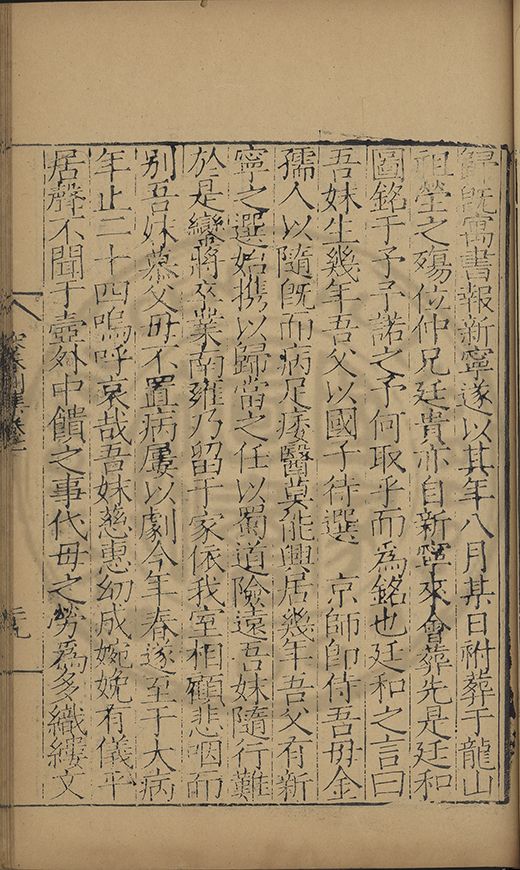 歸旣寓書報新寧遂以其年八月某日祔葬于龍山
祖塋之殤位仲兄廷貴亦自新寧來會葬先是廷和
圖銘于予予諾之予何取乎而爲銘也廷和之言曰
吾妹生幾年吾父以國子待選　京師卽侍吾母金
孺人以隨旣而病足痿醫莫能興居幾年吾父有新
寧之選始携以歸當之任以蜀道險遠吾妹隨行難
於是鑾將卒業南雍乃留于家依我室相顧悲咽而
別吾妹慕父母不置病屢以劇今年春遂至于大病
年止二十四嗚呼哀哉吾妹慈惠幼成婉娩有儀平
居聲不聞于壼外中饋之事代母之勞爲多織縷文